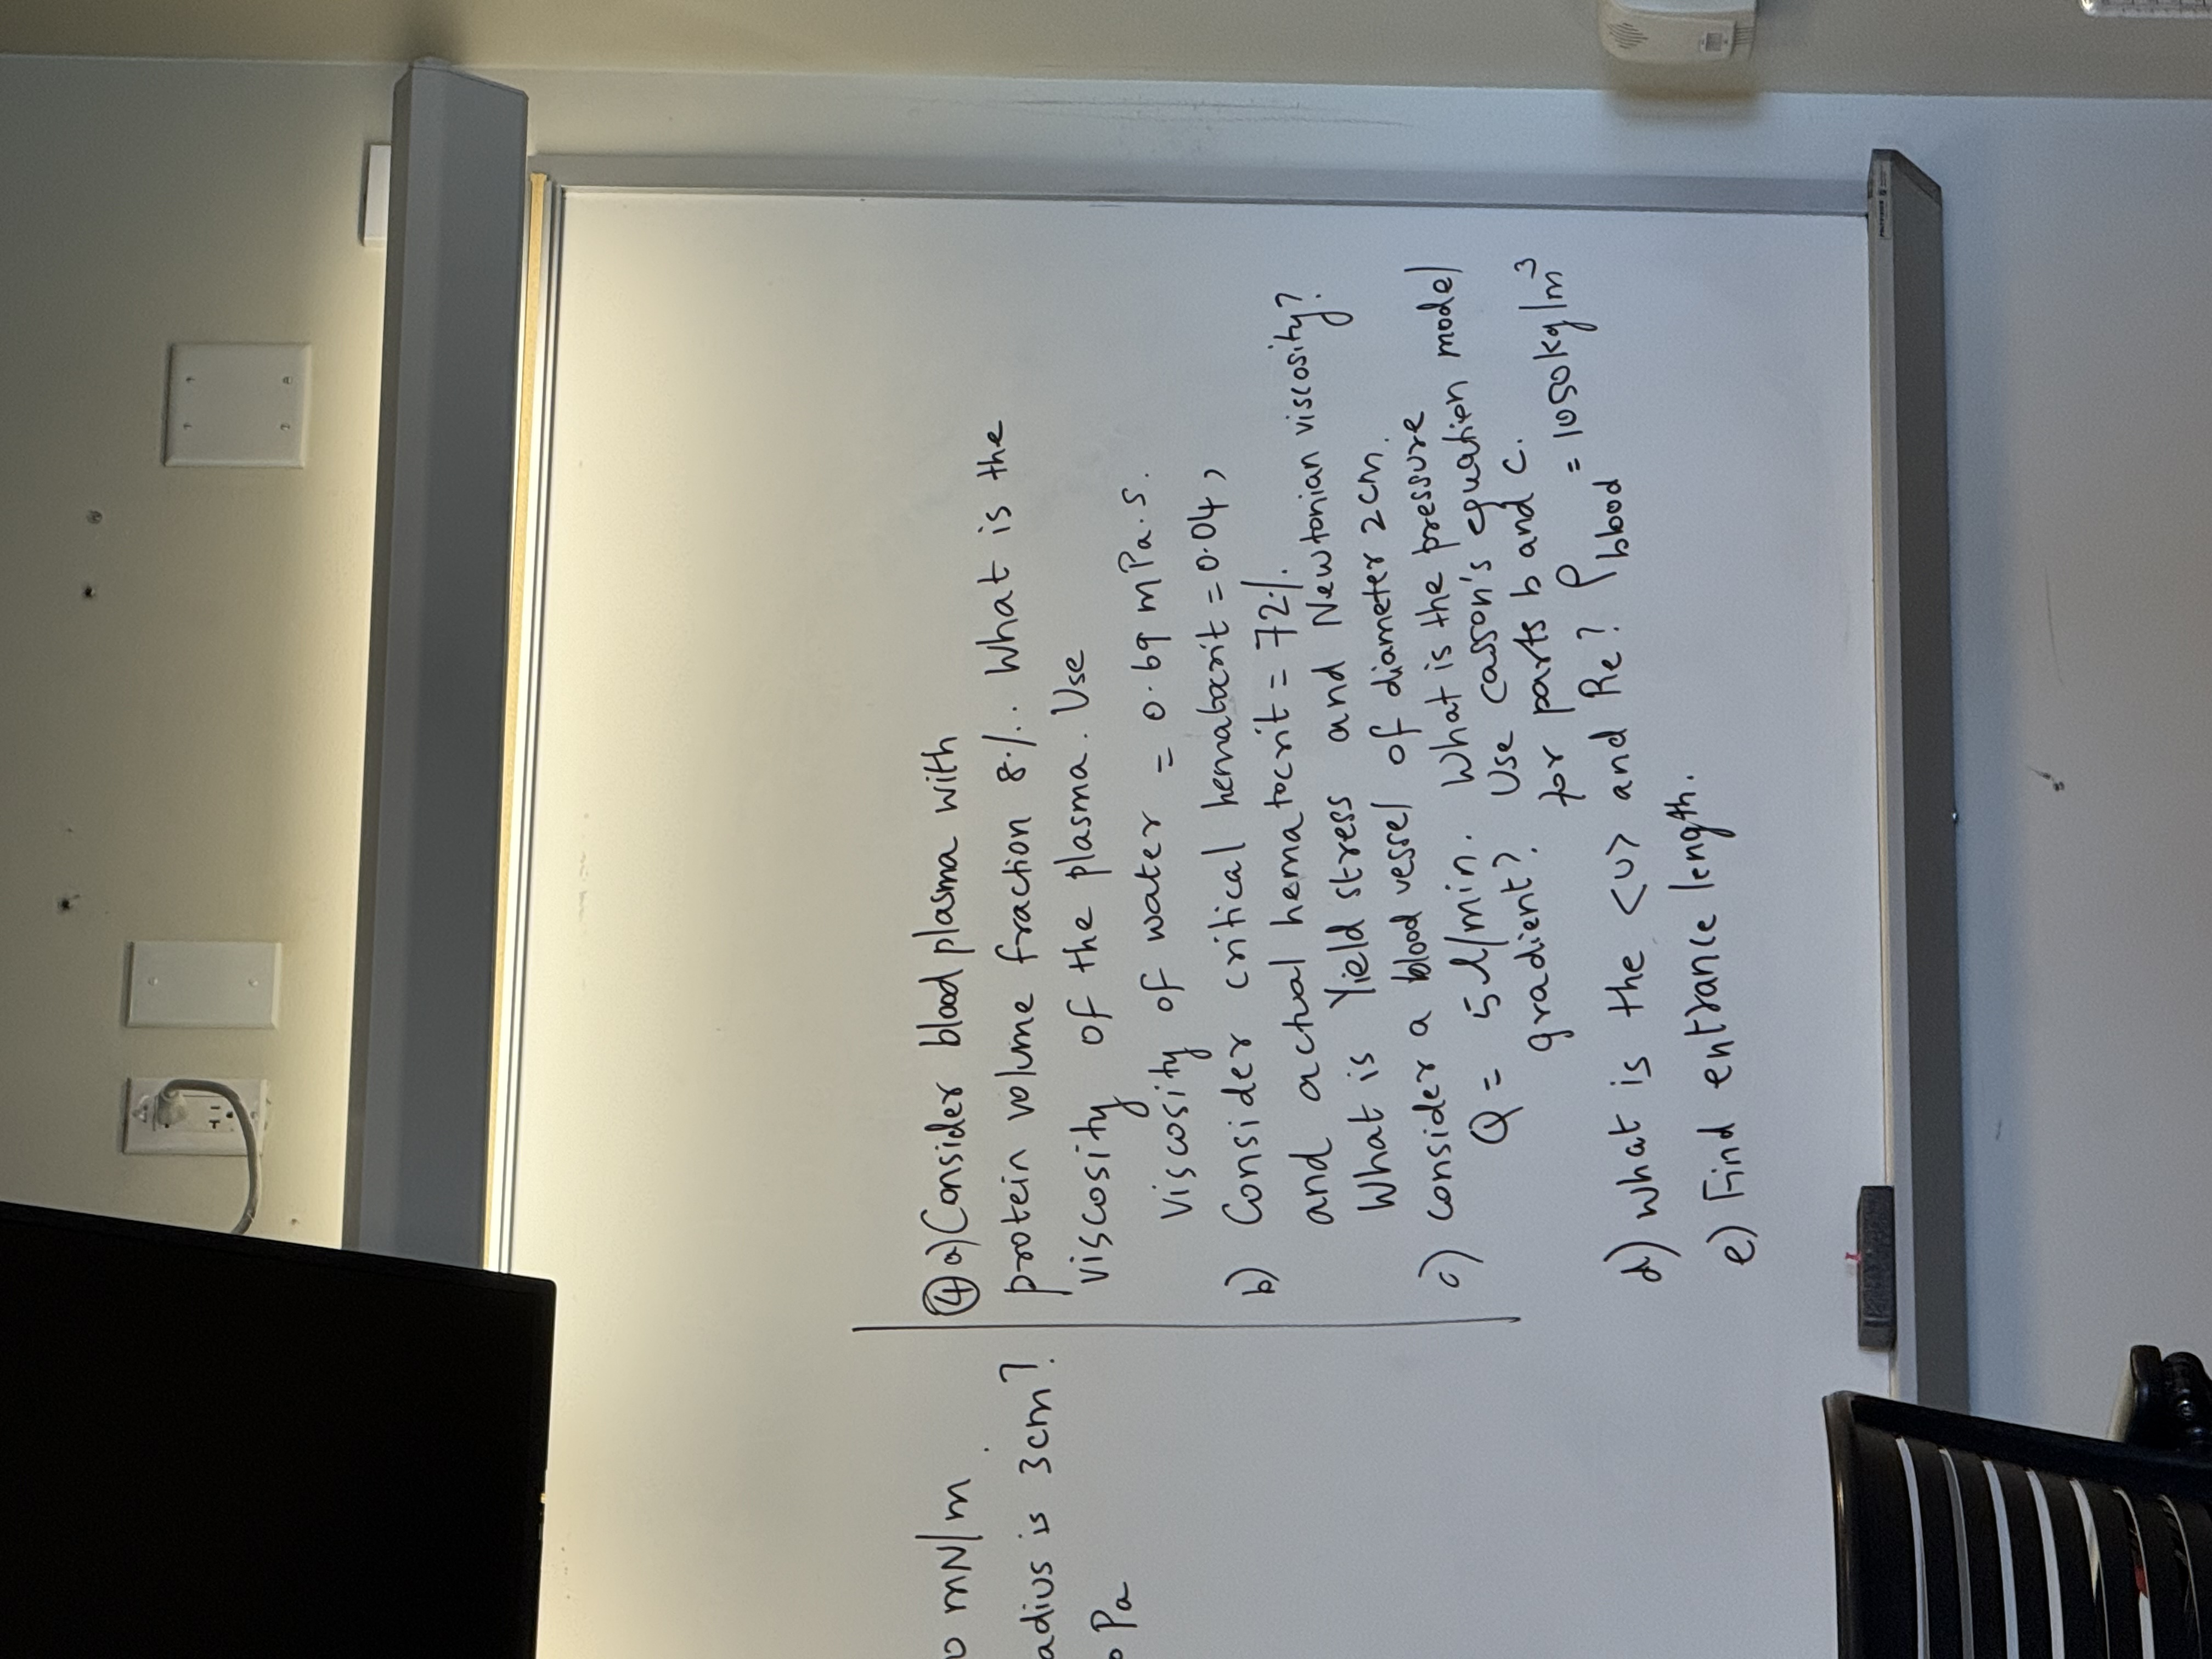 0 mN/m
adius is 3cm?
0 Pa
④ a) Consider blood plasma with
protein volume fraction 8%. What is the
viscosity of the plasma. Use
viscosity of water = 0.69 mPa.s.
b) Consider critical hematocrit = 0.04,
and actual hematocrit = 72%.
What is Yield stress and Newtonian viscosity?
c) consider a blood vessel of diameter 2cm.
Q = 5 l/min. What is the pressure
gradient? Use casson's equation model
for parts b and c.
d) what is the <u> and Re? ρ blood = 1050 kg/m³
e) Find entrance length.